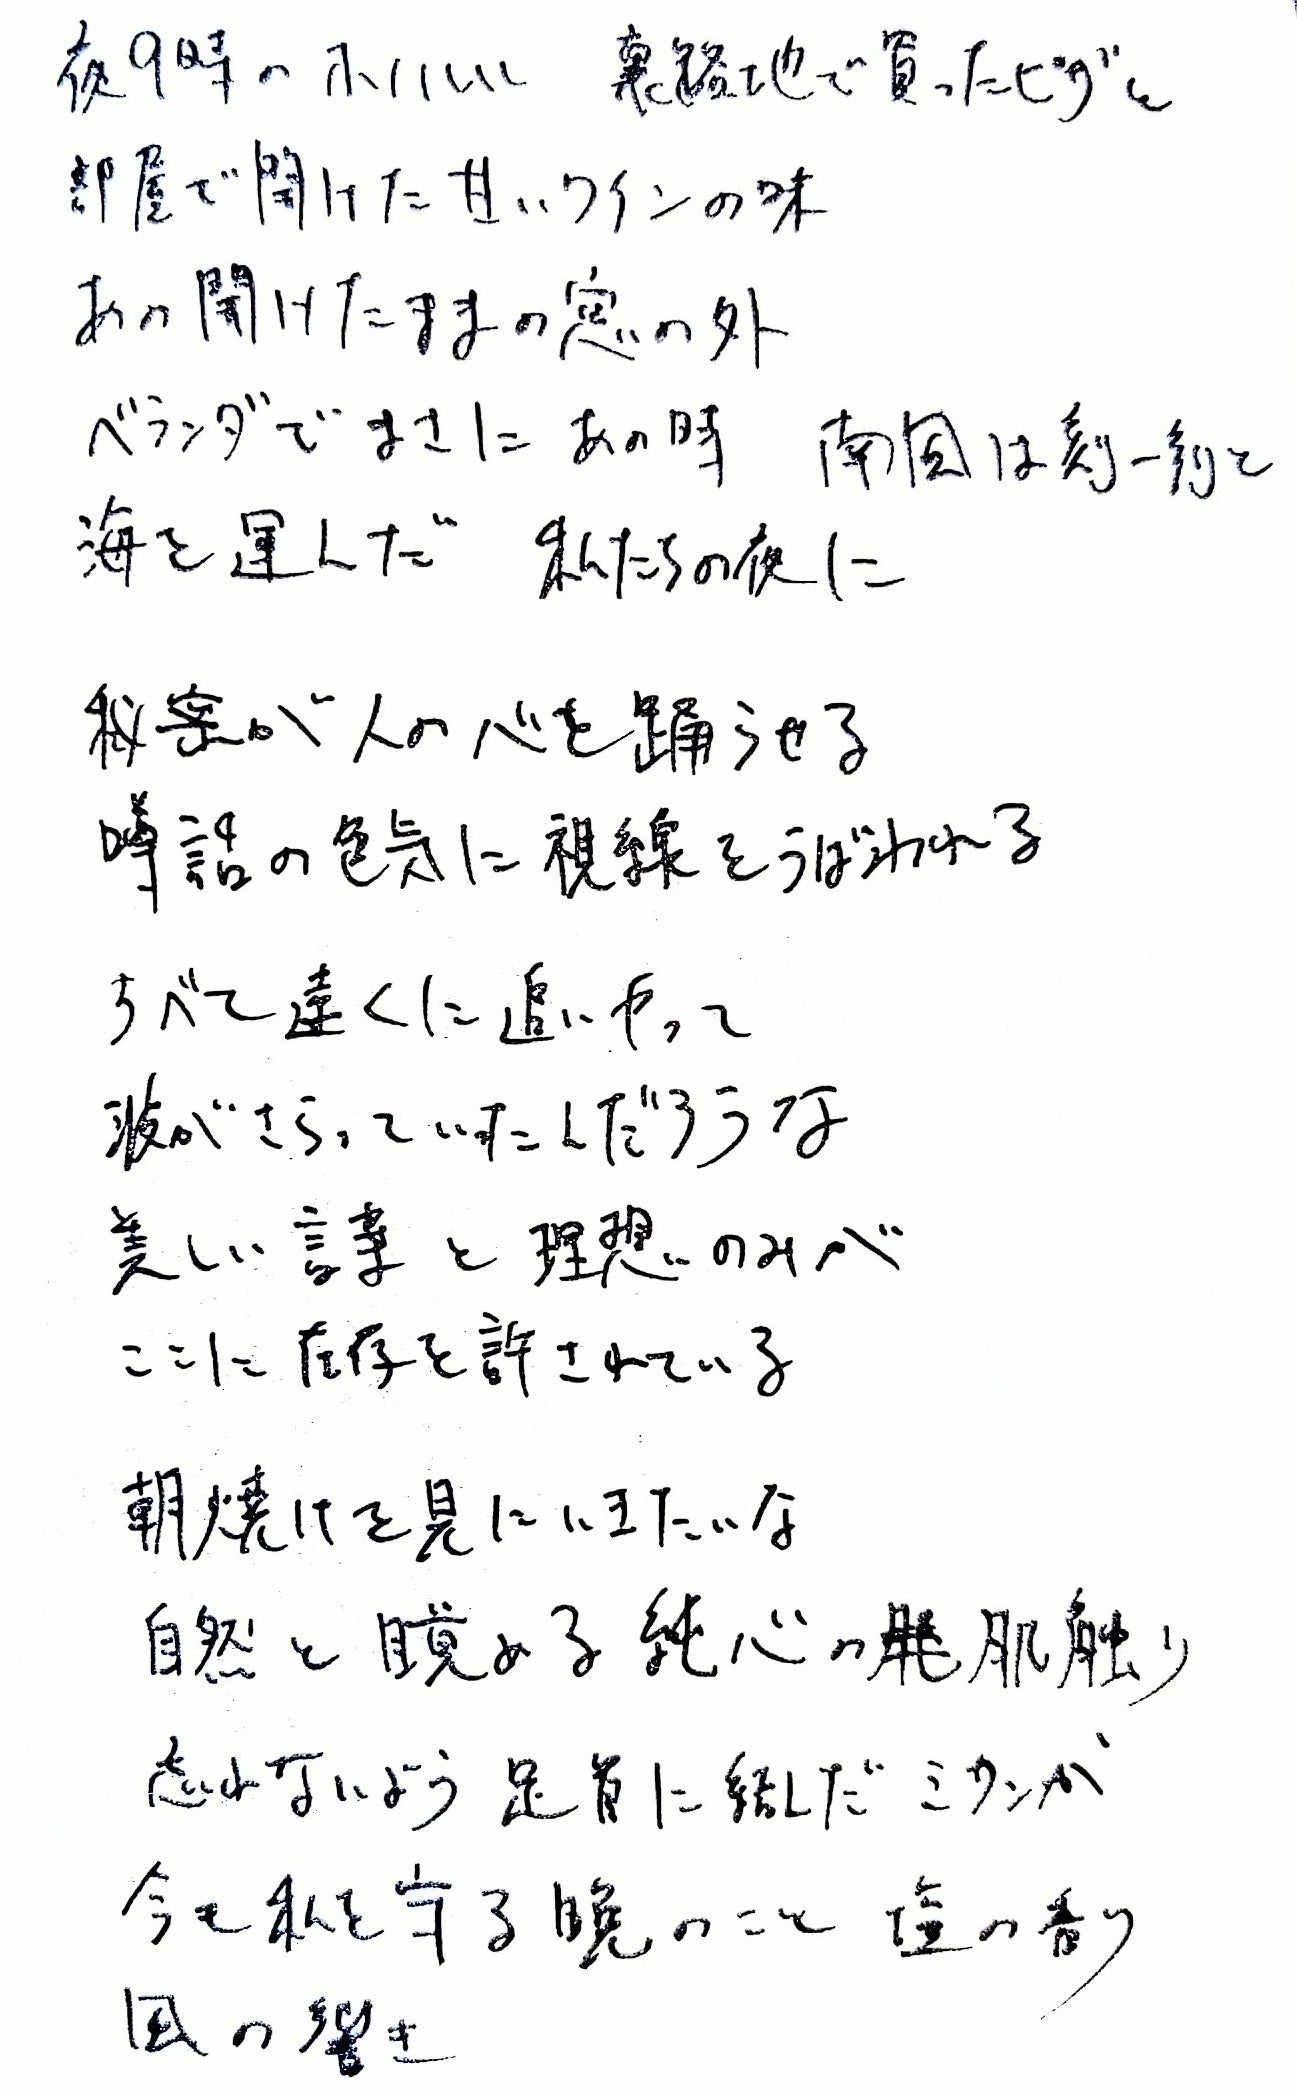 夜9時のホノルル 裏路地で買ったピザと
部屋で開けた甘いワインの味
あの開けたままの窓の外
ベランダでまさにあの時 南国は刻一刻と
海を運んだ 私たちの夜に
秘密が人の心を踊らせる
噂話の色気に視線をうばわれる
すべて遠くに追いやって
波がさらっていたんだろうな
美しい言葉と理想のみが
ここに存在を許されている
朝焼けを見にいきたいな
自然と眺める純心の肌触り
忘れないよう足首に結んだミサンガ
今も私を守る晩のこと 塩の香り
風の響き